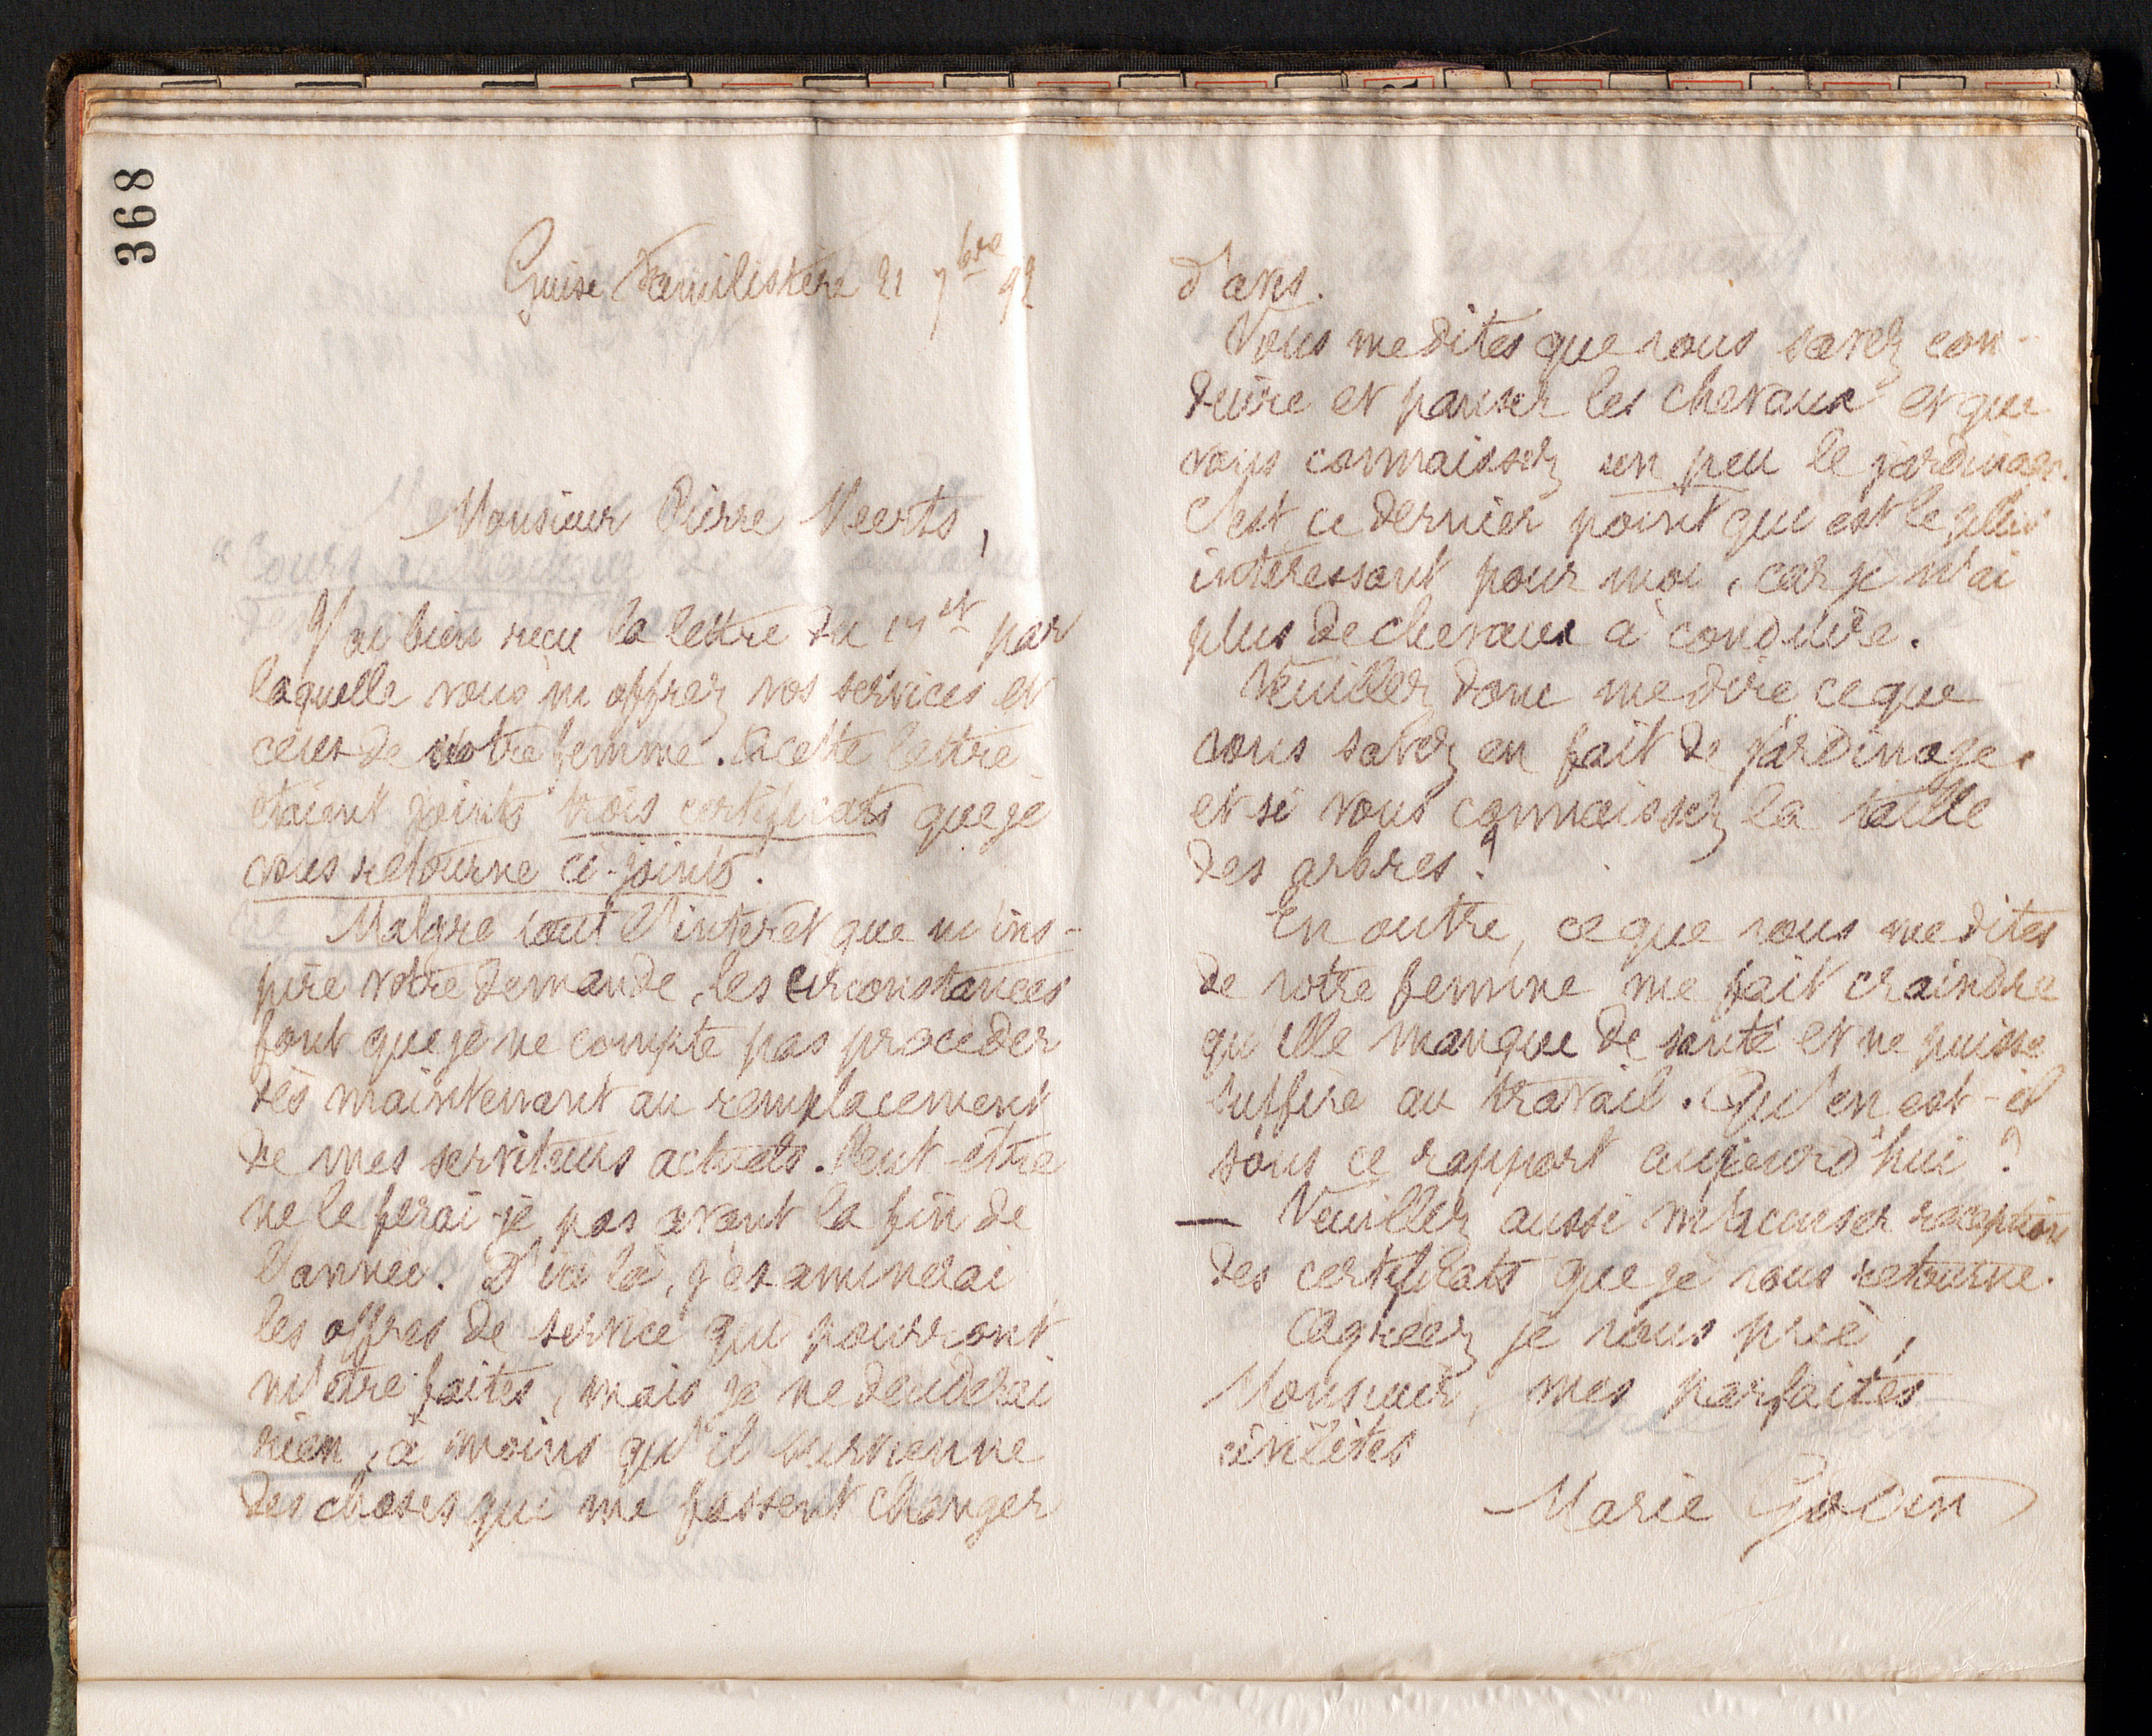 368
Guise Familistère 21 7bre 92
Monsieur Pierre Meerts,
J'ai bien reçu la lettre du 17 ct par
laquelle vous m'offrez vos services et
ceux de votre femme. A cette lettre
étaient joints trois certificats que je
vous retourne ci-joints.
Malgré tout l'intérêt que m'ins-
pire votre demande, les circonstances
font que je ne compte pas procéder
dès maintenant au remplacement
de mes serviteurs actuels. Peut-être
ne le ferai-je pas avant la fin de
l'année. D'ici là, j'examinerai
les offres de service qui pourront
m'être faites, mais je ne déciderai
rien, à moins qu'il survienne
des choses qui me fassent changer
d'avis.
Vous me dites que vous savez con-
duire et panser les chevaux et que
vous connaissez un peu le jardinage.
C'est ce dernier point qui est le plus
intéressant pour moi, car je n'ai
plus de chevaux à conduire.
Veuillez donc me dire ce que
vous savez en fait de jardinage.
et si vous connaissez la taille
des arbres?
En outre, ce que vous me dites
de votre femme me fait craindre
qu'elle manque de santé et ne puisse
suffire au travail. Qu'en est-il
sous ce rapport aujourd'hui?
— Veuillez aussi m'accuser réception
des certificats que je vous retourne.
Agréez, je vous prie,
Monsieur, mes parfaites
civilités
Marie Godin